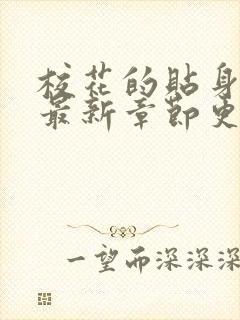 校花的贴身
最新章节史
一望而深深深